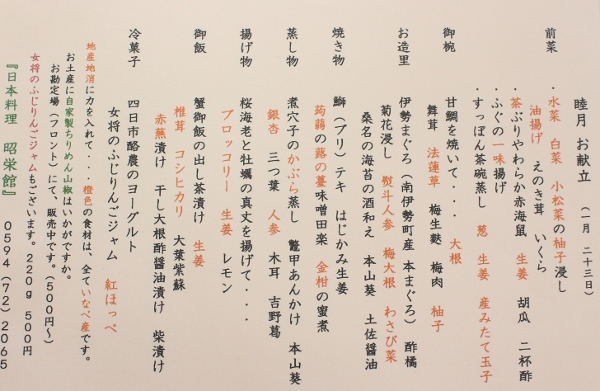 睦月 お献立 (一月 二十三日)
前菜 ・水菜 白菜 小松菜の柚子浸し
油揚げ えのき茸 いくら
・茶ぶりやわらか赤海鼠 生姜 胡瓜 二杯酢
・ふぐの一味揚げ
・すっぽん茶碗蒸し 葱 生姜 産みたて玉子
御椀 甘鯛を焼いて・・・ 大根
舞茸 法蓮草 梅生麩 梅肉 柚子
お造里 伊勢まぐろ(南伊勢町産 本まぐろ) 酢橘
菊花浸し 熨斗人参 梅大根 わさび菜
桑名の海苔の酒和え 本山葵 土佐醤油
焼き物 鰤(ブリ)テキ はじかみ生姜
蒟蒻の蕗の薹味噌田楽 金柑の蜜煮
蒸し物 煮穴子のかぶら蒸し 鼈甲あんかけ 本山葵
銀杏 三つ葉 人参 木耳 吉野葛
揚げ物 桜海老と牡蠣の真丈を揚げて・・・
ブロッコリー 生姜 レモン
御飯 蟹御飯の出し茶漬け 生姜
椎茸 コシヒカリ 大葉紫蘇
赤蕪漬け 干し大根酢醤油漬け 柴漬け
冷菓子 四日市酪農のヨーグルト
女将のふじりんごジャム 紅ほっぺ
地産地消に力を入れて・・・橙色の食材は、全ていなべ産です。
お土産に自家製ちりめん山椒はいかがですか。
お勘定場(フロント)にて、販売中です。(500円~)
女将のふじりんごジャムもございます。220g 500円
『日本料理 昭栄館』 0594(72)2065